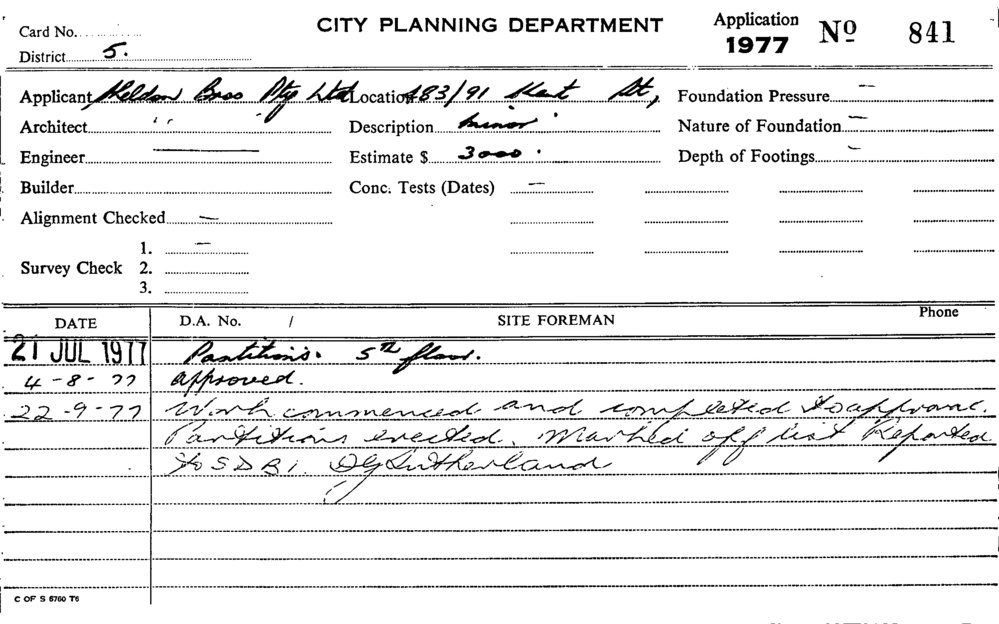 CITY PLANNING DEPARTMENT
Application
1977 Nº 841
Card No.
District 5.
Applicant Bros Pty Ltd Location 483/91 Kent St, Foundation Pressure —
Architect " Description minor Nature of Foundation —
Engineer — Estimate $ 3000. Depth of Footings —
Builder Conc. Tests (Dates) —
Alignment Checked —
1. —
Survey Check 2.
3.
DATE D.A. No. / SITE FOREMAN Phone
21 JUL 1977 Partitions. 5th floor.
4-8-77 approved.
22-9-77 Work commenced and completed to
Partitions erected. Marked off list Reported
to SDBI. Sutherland
C OF S 6760 T6